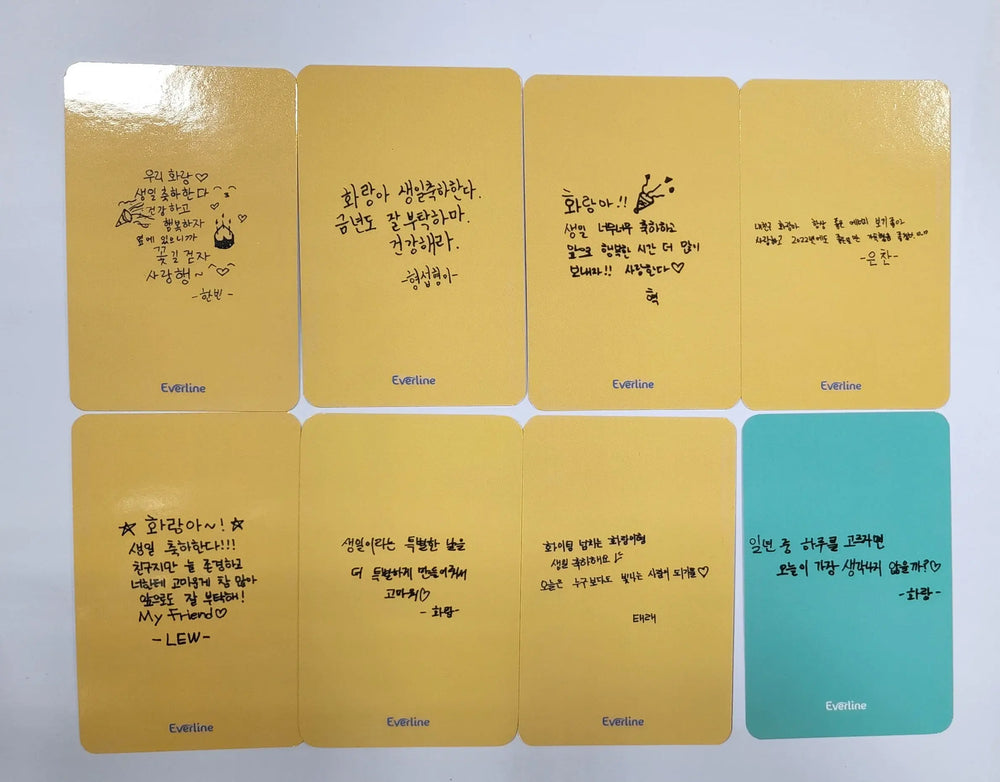 우리 화랑♡
생일 축하한다 ^_^
건강하고
행복하자
옆에 있으니까
꽃길 걷자
사랑행~
-한빈-
Everline
화랑아 생일축하한다.
금년도 잘 부탁하마.
건강해라.
-형섭형이-
Everline
화랑아!!
생일 너무너무 축하하고
앞으로 행복한 시간 더 많이
보내자!! 사랑한다♡
혁
Everline
화랑아 항상 좋은 에너지
사랑하고 2022년에도
-은찬-
Everline
☆ 화랑아~! ☆
생일 축하한다!!!
친구지만 늘 존경하고
너한테 고마운게 참 많아
앞으로도 잘 부탁해!
My Friend♡
-LEW-
Everline
생일이라는 특별한 날을
더 특별하게 만들어줘서
고마워♡
-화랑-
Everline
화이팅 넘치는 화랑이형
생일 축하해요
오늘은 누구보다도 빛나는 사람이 되기를♡
태래
Everline
일년 중 하루를 고르자면
오늘이 가장 생각나지 않을까?♡
-화랑-
Everline